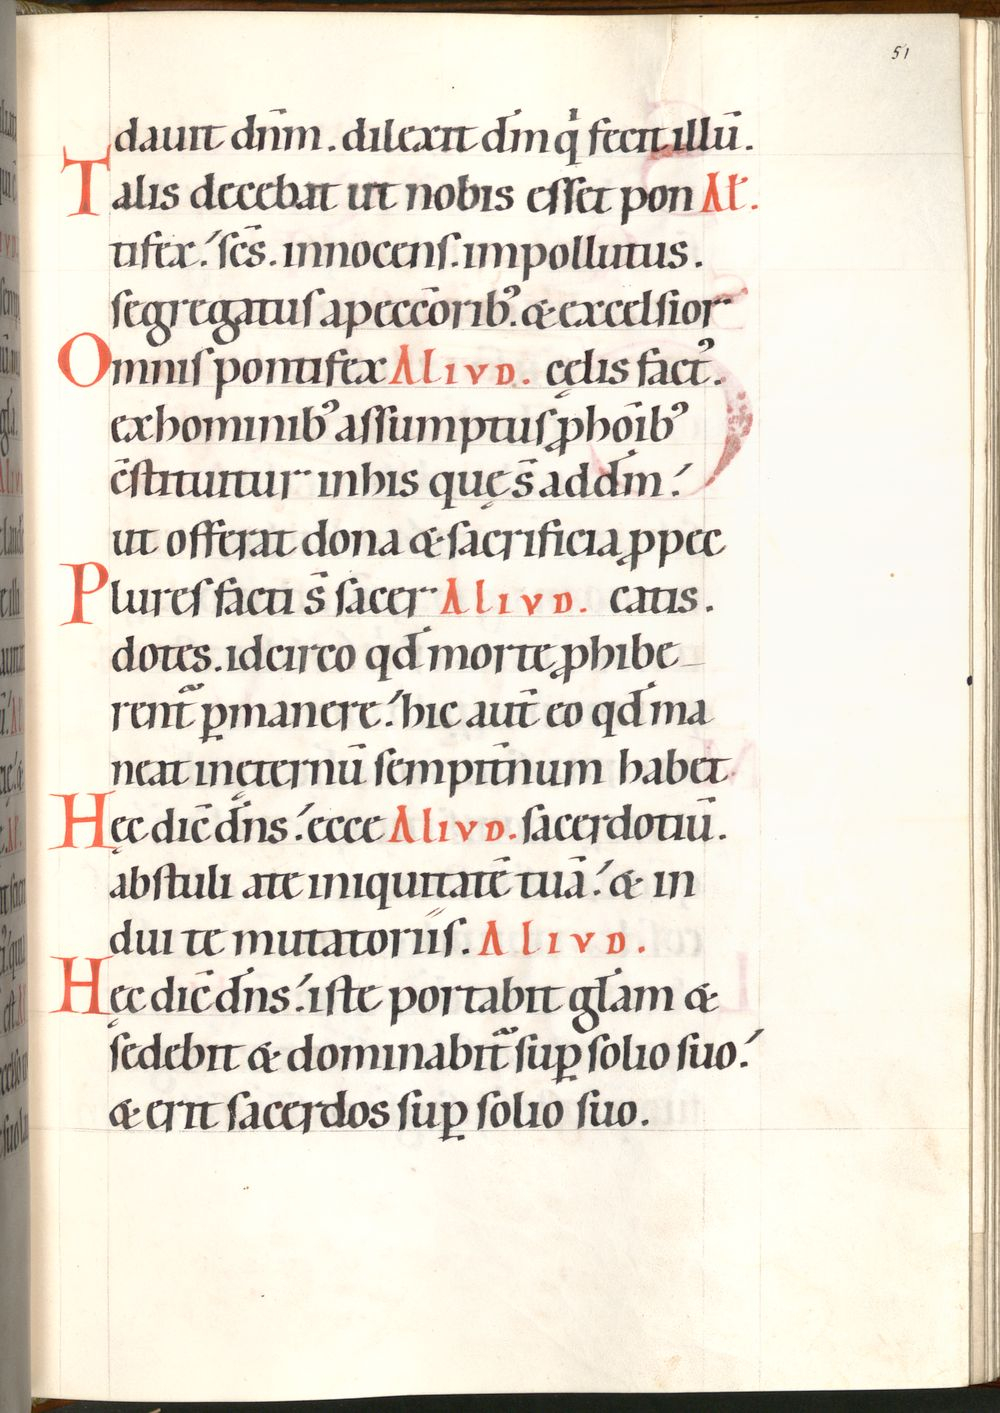 51
dauit dñm. dilexit dm̄ qͥ fecit illū.
Talis decebat ut nobis esset pon Al̄.
tifex. sc̄s. innocens. impollutus.
segregatus a pecc̄orib᾽. & excelsior
Omnis pontifex ALIVD. cęlis fact᾽.
ex hominib᾽ assumptus ꝓ hōib᾽
c̄stituitur in his quę s̄ ad dm̄.
ut offerat dona & sacrificia ꝓ pec
Plures facti s̄ sacer ALIVD. catis.
dotes. idcirco qđ morte ꝓhibe
rent̃ ꝑmanere. hic aut̄ eo qđ ma
neat in ęternū sempit̄num habet
Hęc dic̄ dñs. ecce ALIVD. sacerdotiū.
abstuli a te iniquitatē tuā. & in
dui te mutatoriis. ALIVD.
Hęc dic̄ dñs. iste portabit gl̄am &
sedebit & dominabit̃ suꝑ solio suo.
& erit sacerdos suꝑ solio suo.